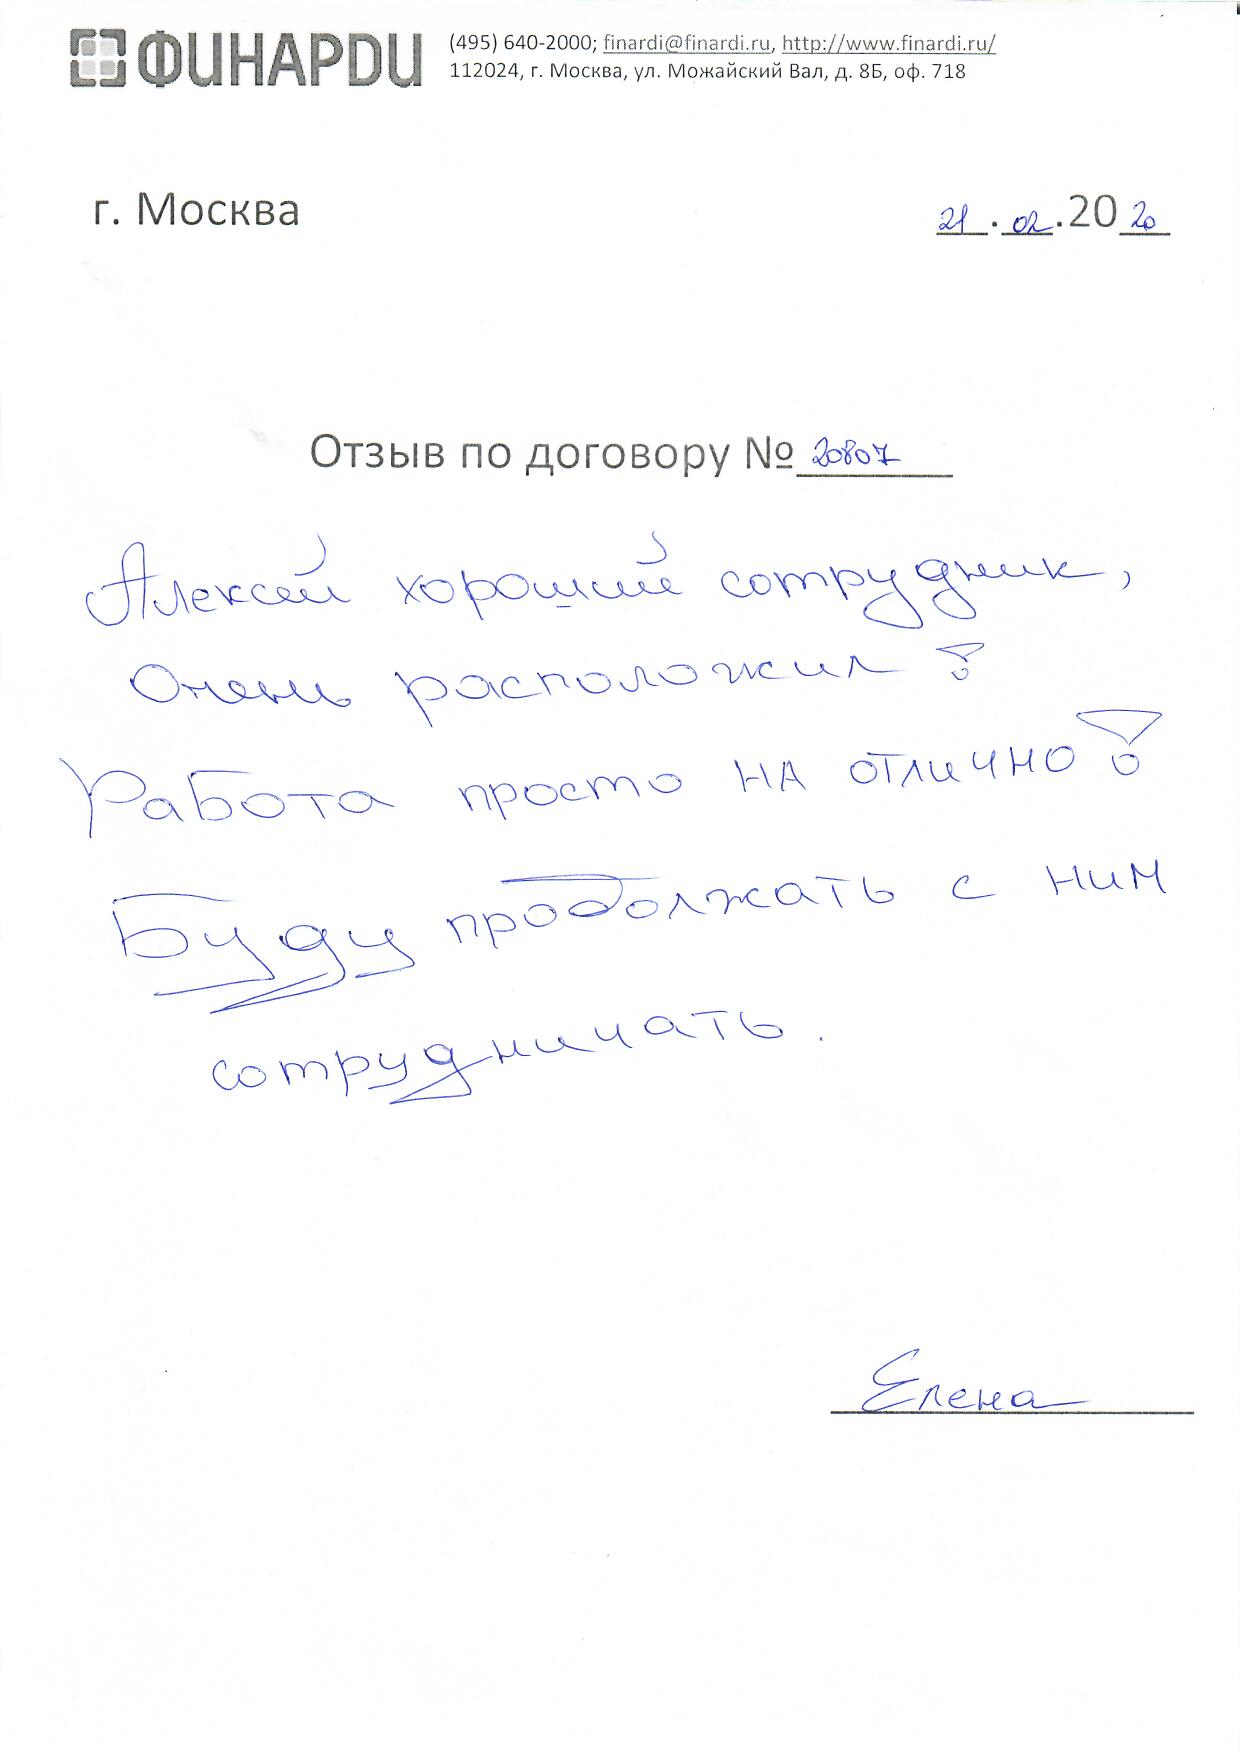 ФИНАРДИ
(495) 640-2000; finardi@finardi.ru, http://www.finardi.ru/
112024, г. Москва, ул. Можайский Вал, д. 8Б, оф. 718
г. Москва 21.02.2020
Отзыв по договору № 20807
Алексей хороший сотрудник,
Очень расположил!
Работа просто на отлично!
Буду продолжать с ним
сотрудничать.
Елена